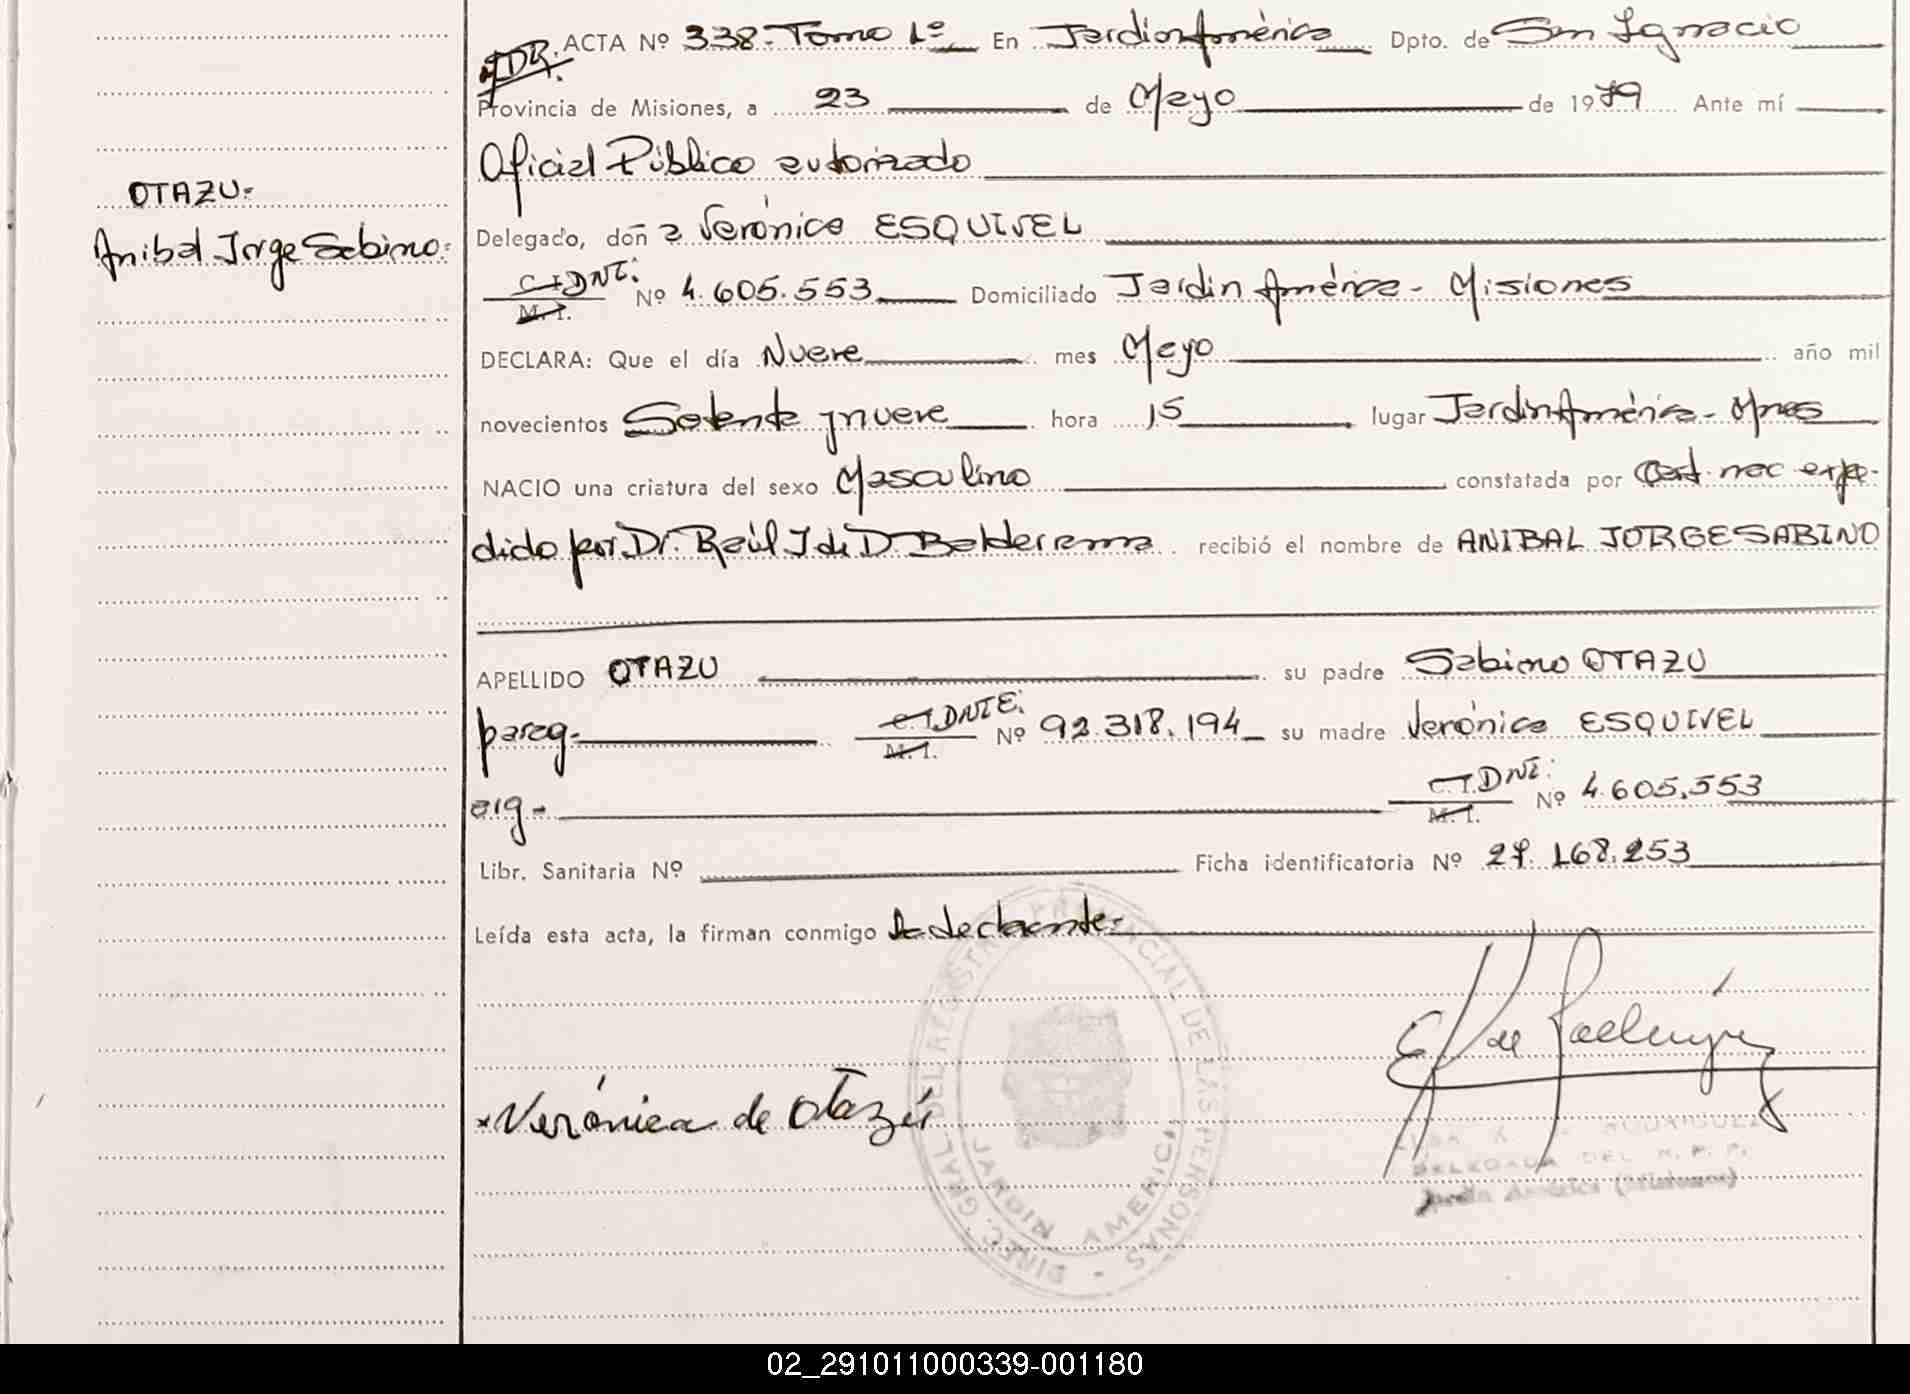 ACTA Nº 338- Tomo 1º En Jardín América Dpto. de San Ignacio
Provincia de Misiones, a 23 de Mayo de 1979 Ante mí
Oficial Público autorizado
OTAZU-
Anibal Jorge Sabino-
Delegado, doña Verónica ESQUIVEL
C.I. DNI: M.I. Nº 4.605.553 Domiciliado Jardín América - Misiones
DECLARA: Que el día Nueve mes Mayo año mil
novecientos Setenta y nueve hora 15 lugar Jardín América - Mnes
NACIO una criatura del sexo Masculino constatada por Cert nac expe-
dido por Dr. Raúl J. de D. Balderrama recibió el nombre de ANIBAL JORGE SABINO
APELLIDO OTAZU su padre Sabino OTAZU
parag- C.I. DNIE: M.I. Nº 92.318.194 su madre Verónica ESQUIVEL
arg- C.I. DNI: M.I. Nº 4.605.553
Libr. Sanitaria Nº Ficha identificatoria Nº 27.168.253
Leída esta acta, la firman conmigo la declarante-
Verónica de Otazú
DIREC. GRAL. DEL REGISTRO PROVINCIAL DE LAS PERSONAS -
JARDIN AMERICA
RODRIGUEZ
DELEGADA DEL R. P. P.
Jardín América (Misiones)
02_291011000339-001180